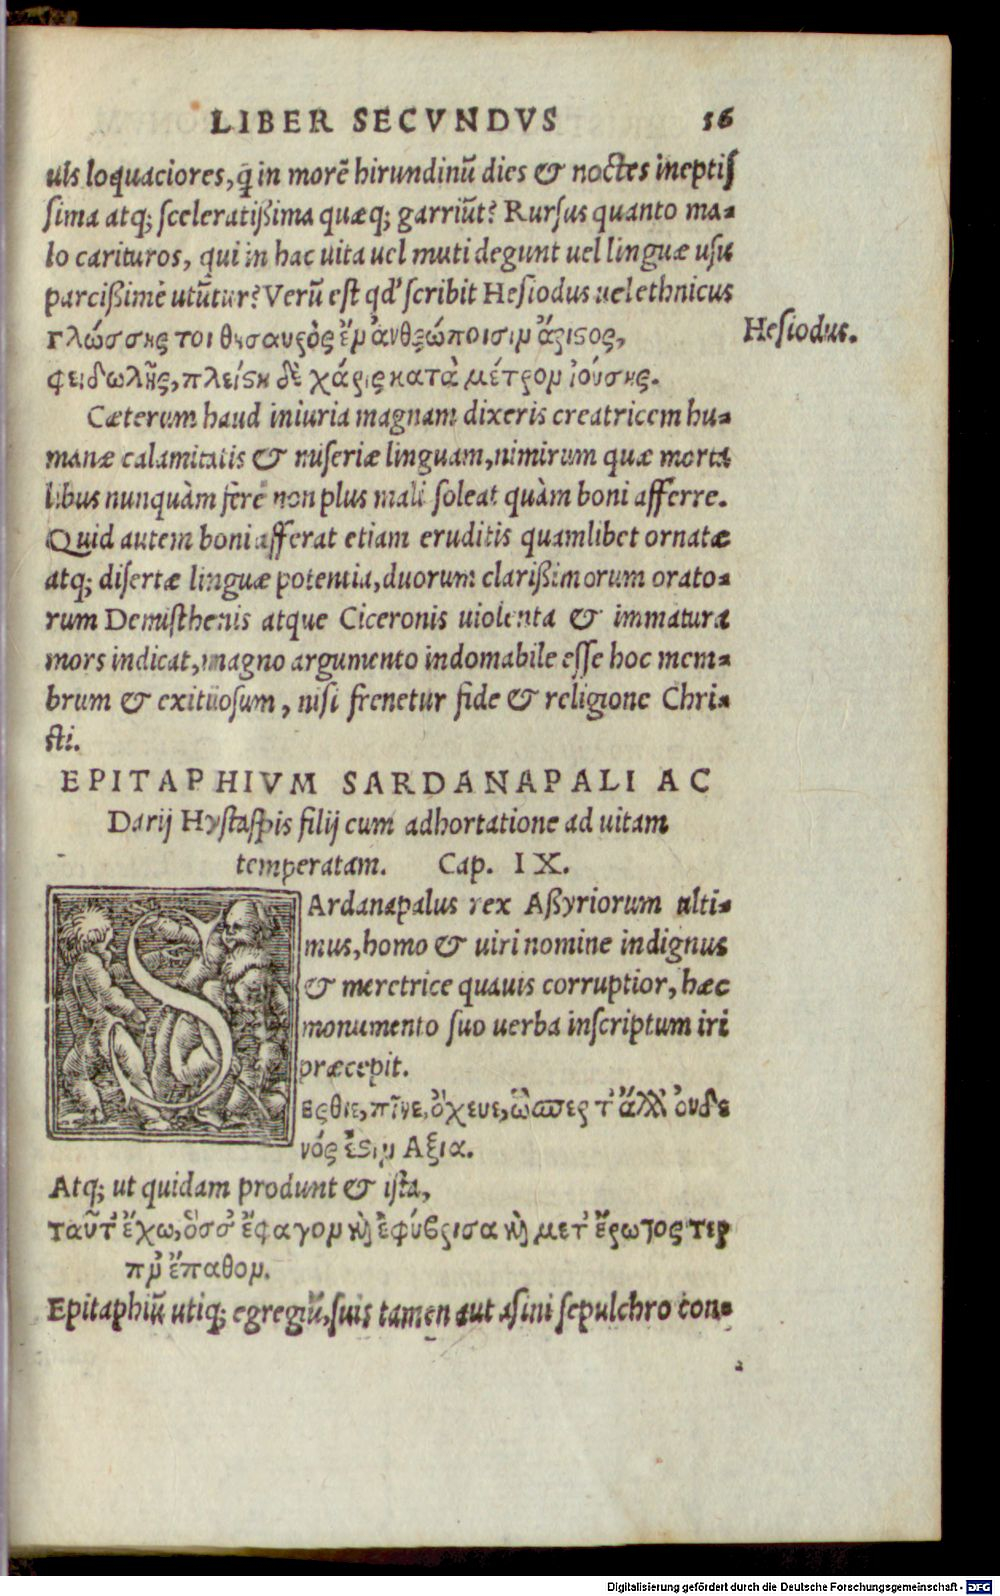 LIBER SECVNDVS 16
uis loquaciores, q̃ in morē hirundinū dies & noctes ineptiſ
ſima atq; ſceleratißima quæq; garriūt? Rurſus quanto ma-
lo carituros, qui in hac uita uel muti degunt uel linguæ uſu
parcißimè utūtur? Verū eſt qd' ſcribit Heſiodus uel ethnicus
Γλώσσης τοι θησαυρὸς ἐν ἀνθρώποισιν ἄριϛος,
φειδωλῆς, πλείϛη δὲ χάρις κατὰ μέτρον ἰούσης.
Heſiodus.
Cæterum haud iniuria magnam dixeris creatricem hu-
manæ calamitatis & miſeriæ linguam, nimirum quæ morta
libus nunquàm ferè non plus mali ſoleat quàm boni afferre.
Quid autem boni afferat etiam eruditis quamlibet ornatæ
atq; diſertæ linguæ potentia, duorum clarißimorum orato-
rum Demiſthenis atque Ciceronis uiolenta & immatura
mors indicat, magno argumento indomabile eſſe hoc mem-
brum & exitioſum, niſi frenetur fide & religione Chri-
ſti.
EPITAPHIVM SARDANAPALI AC
Darij Hyſtaſpis filij cum adhortatione ad uitam
temperatam. Cap. IX.
SArdanapalus rex Aßyriorum ulti-
mus, homo & uiri nomine indignus
& meretrice quauis corruptior, hæc
monumento ſuo uerba inſcriptum iri
præcepit.
Εσθιε, πῖνε, ὄχευε, ὡϖερ τ' ἄλλ' ὀυδε
νός ἐϛιν Αξια.
Atq; ut quidam produnt & iſta,
ταῦτ' ἔχω, ὅσσ' ἔφαγον κὶ ἐφύβρισα κὶ μετ' ἔρωτος τερ
πν' ἔπαθον.
Epitaphiū utiq; egregiū, ſuis tamen aut aſini ſepulchro con-
Digitalisierung gefördert durch die Deutsche Forschungsgemeinschaft - DFG